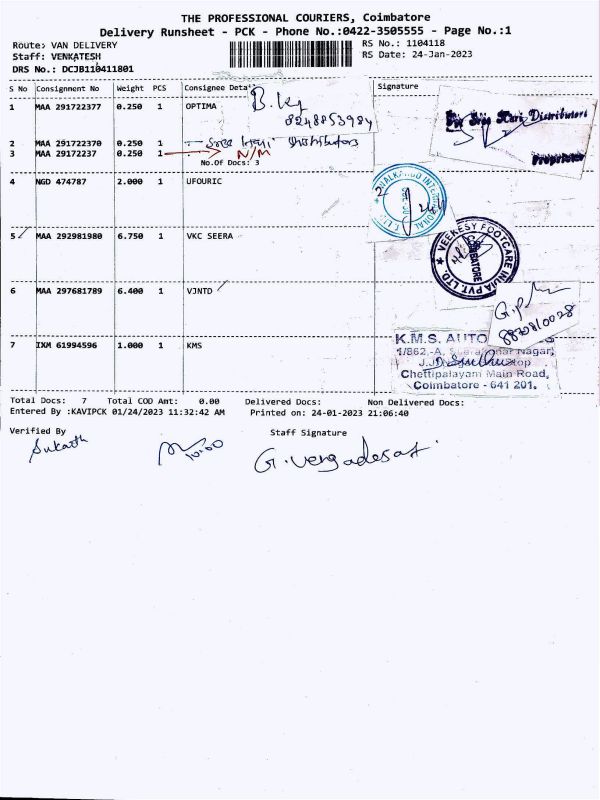 THE PROFESSIONAL COURIERS, Coimbatore
Delivery Runsheet - PCK - Phone No.:0422-3505555 - Page No.:1
Route: VAN DELIVERY RS No.: 1104118
Staff: VENKATESH RS Date: 24-Jan-2023
DRS No.: DCJB110411801
S No Consignment No Weight PCS Consignee Deta Signature
1 MAA 291722377 0.250 1 OPTIMA
8248853984
Sree Hari Distributors
2 MAA 291722370 0.250 1 Sree Hari Distributors
3 MAA 29172237 0.250 1 N/M
No.Of Docs: 3
Proprietor
4 NGD 474787 2.000 1 UFOURIC
5 MAA 292981980 6.750 1 VKC SEERA
VEEKESY FOOTCARE INDIA PVT. LTD.
COIMBATORE
6 MAA 297681789 6.400 1 VJNTD
8870810028
7 IXM 61994596 1.000 1 KMS
K.M.S. AUTO
1/862,-A, Nagar,
Chettipalayam Main Road,
Coimbatore - 641 201.
Total Docs: 7 Total COD Amt: 0.00 Delivered Docs: Non Delivered Docs:
Entered By :KAVIPCK 01/24/2023 11:32:42 AM Printed on: 24-01-2023 21:06:40
Verified By Staff Signature
10:00